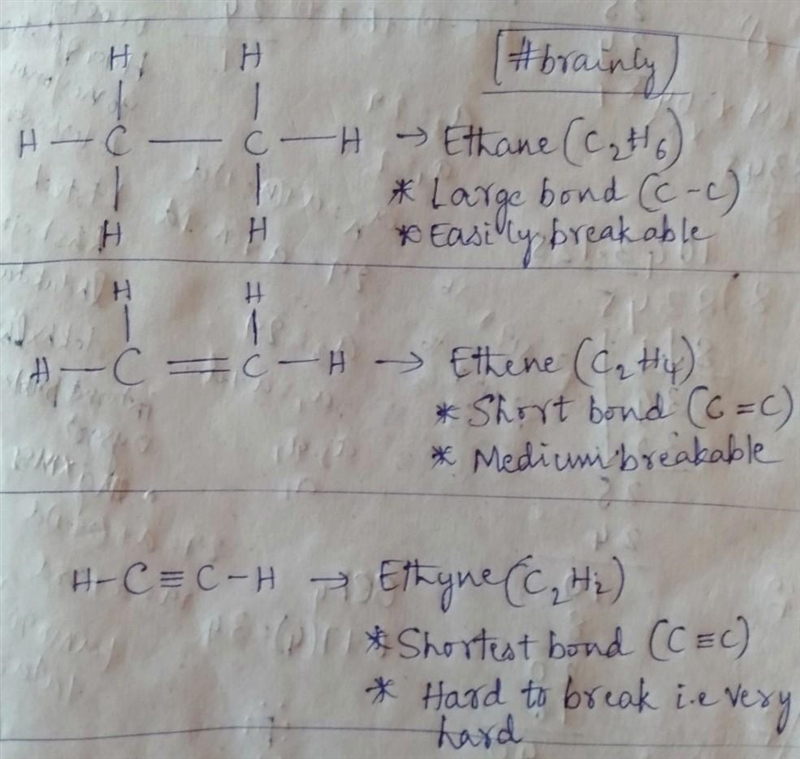 #brainly
H H
H — C — C — H → Ethane (C₂H₆)
* Large bond (C-C)
H H
* Easily breakable
H H
H — C = C — H → Ethene (C₂H₄)
* Short bond (C=C)
* Medium breakable
H-C≡C-H → Ethyne (C₂H₂)
* Shortest bond (C≡C)
* Hard to break i.e very
hard